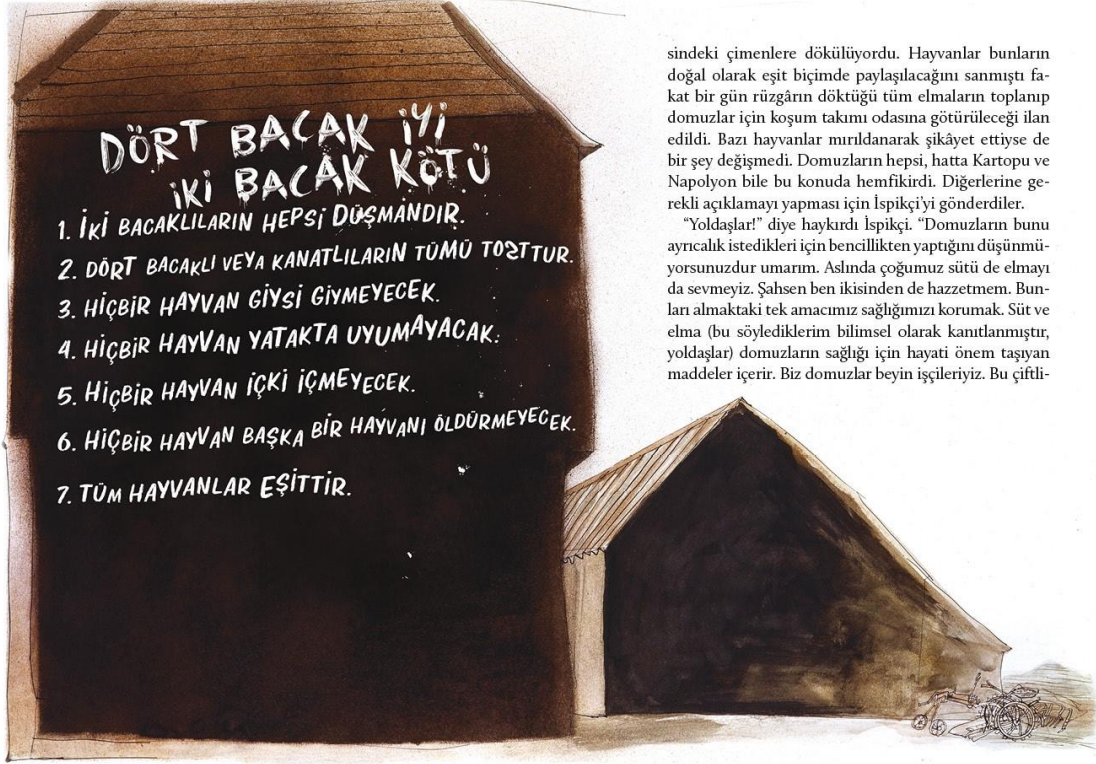 DÖRT BACAK İYİ
İKİ BACAK KÖTÜ
1. İKİ BACAKLILARIN HEPSİ DÜŞMANDIR.
2. DÖRT BACAKLI VEYA KANATLILARIN TÜMÜ TOSTTUR.
3. HİÇBİR HAYVAN GİYSİ GİYMEYECEK.
4. HİÇBİR HAYVAN YATAKTA UYUMAYACAK.
5. HİÇBİR HAYVAN İÇKİ İÇMEYECEK.
6. HİÇBİR HAYVAN BAŞKA BİR HAYVANI ÖLDÜRMEYECEK.
7. TÜM HAYVANLAR EŞİTTİR.
sindeki çimenlere dökülüyordu. Hayvanlar bunların
doğal olarak eşit biçimde paylaşılacağını sanmıştı fa-
kat bir gün rüzgârın döktüğü tüm elmaların toplanıp
domuzlar için koşum takımı odasına götürüleceği ilan
edildi. Bazı hayvanlar mırıldanarak şikâyet ettiyse de
bir şey değişmedi. Domuzların hepsi, hatta Kartopu ve
Napolyon bile bu konuda hemfikirdi. Diğerlerine ge-
rekli açıklamayı yapması için İspikçi’yi gönderdiler.
“Yoldaşlar!” diye haykırdı İspikçi. “Domuzların bunu
ayrıcalık istedikleri için bencillikten yaptığını düşünmü-
yorsunuzdur umarım. Aslında çoğumuz sütü de elmayı
da sevmeyiz. Şahsen ben ikisinden de hazzetmem. Bun-
ları almaktaki tek amacımız sağlığımızı korumak. Süt ve
elma (bu söylediklerim bilimsel olarak kanıtlanmıştır,
yoldaşlar) domuzların sağlığı için hayati önem taşıyan
maddeler içerir. Biz domuzlar beyin işçileriyiz. Bu çiftli-